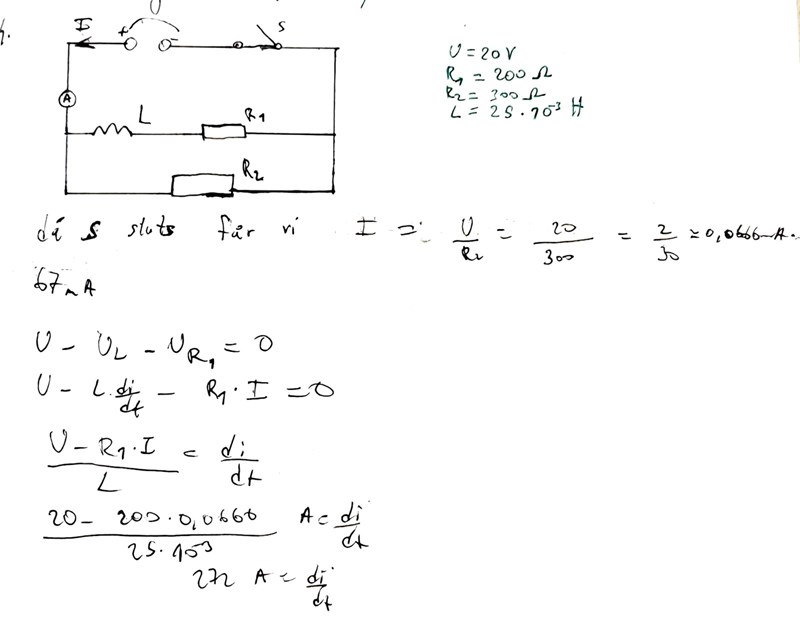 4.
U
I
+ -
S
A
L
R1
R2
U = 20 V
R1 = 200 Ω
R2 = 300 Ω
L = 25 · 10^-3 H
då S sluts får vi I = U/R2 = 20/300 = 2/30 ≈ 0,0666 A.
67mA
U - U_L - U_R1 = 0
U - L·di/dt - R1·I = 0
(U - R1·I)/L = di/dt
(20 - 200·0,0666)/(25·10^-3) A = di/dt
272 A = di/dt